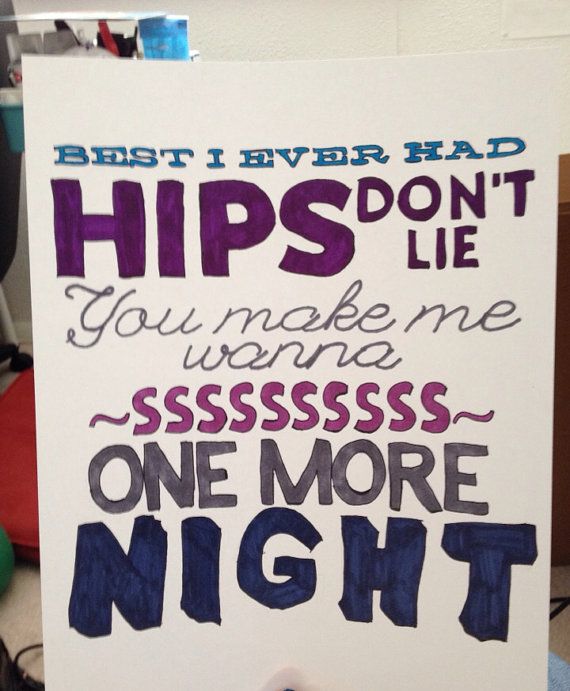 BEST I EVER HAD
HIPS DON'T
LIE
You make me
wanna
~SSSSSSSSSS~
ONE MORE
NIGHT